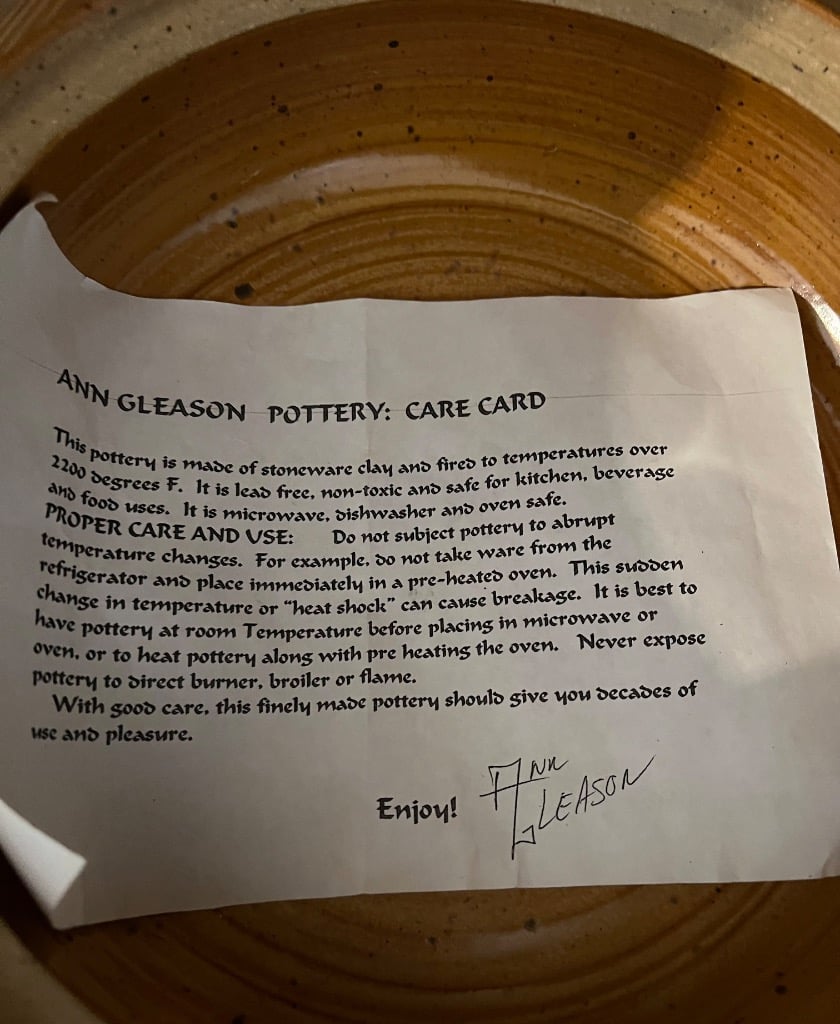 ANN GLEASON POTTERY: CARE CARD
This pottery is made of stoneware clay and fired to temperatures over
2200 degrees F. It is lead free, non-toxic and safe for kitchen, beverage
and food uses. It is microwave, dishwasher and oven safe.
PROPER CARE AND USE: Do not subject pottery to abrupt
temperature changes. For example, do not take ware from the
refrigerator and place immediately in a pre-heated oven. This sudden
change in temperature or “heat shock” can cause breakage. It is best to
have pottery at room Temperature before placing in microwave or
oven, or to heat pottery along with pre heating the oven. Never expose
pottery to direct burner, broiler or flame.
With good care, this finely made pottery should give you decades of
use and pleasure.
Enjoy! ANN
GLEASON